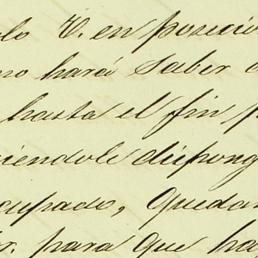 lo V. en posicio
no hará saber a
hasta el fin p
iendole dispong
cupado, quedan
or. para que ha